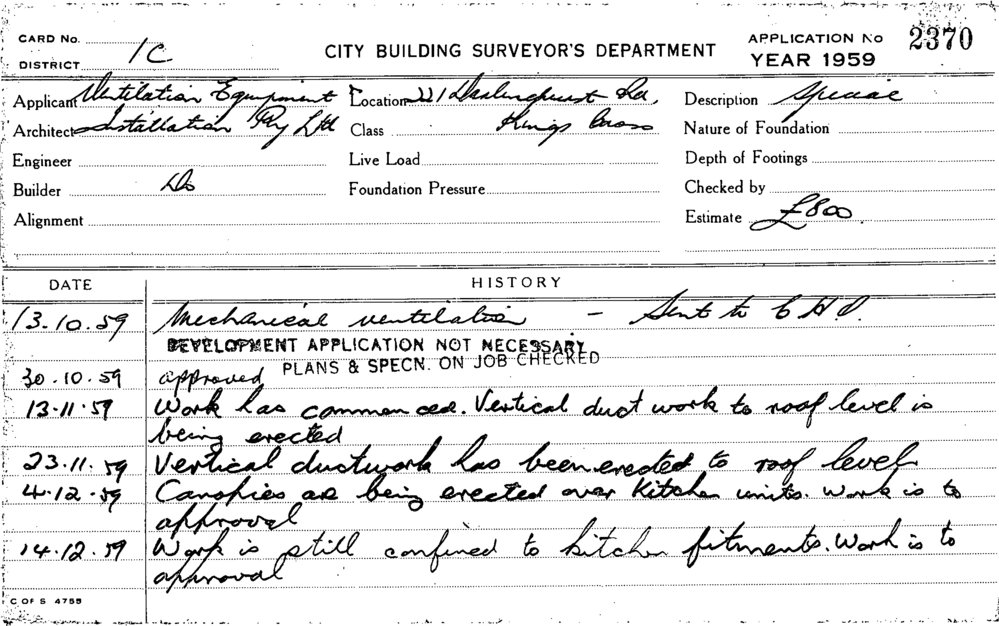 CARD No.
DISTRICT 1C
CITY BUILDING SURVEYOR'S DEPARTMENT
APPLICATION No 2370
YEAR 1959
Applicant Ventilation Equipment Location 221 Darlinghurst Rd, Description Special
Architect Installation Pty Ltd Class Kings Cross Nature of Foundation
Engineer Live Load Depth of Footings
Builder Do Foundation Pressure Checked by
Alignment Estimate £800
DATE HISTORY
13.10.59 Mechanical ventilation - Sent to C.H.O.
DEVELOPMENT APPLICATION NOT NECESSARY
PLANS & SPECN. ON JOB CHECKED
30.10.59 approved
13.11.59 Work has commenced. Vertical duct work to roof level is
being erected
23.11.59 Vertical ductwork has been erected to roof level
4.12.59 Canopies are being erected over Kitchen units. Work is to
approval
14.12.59 Work is still confined to kitchen fitments. Work is to
approval
C OF S 4755